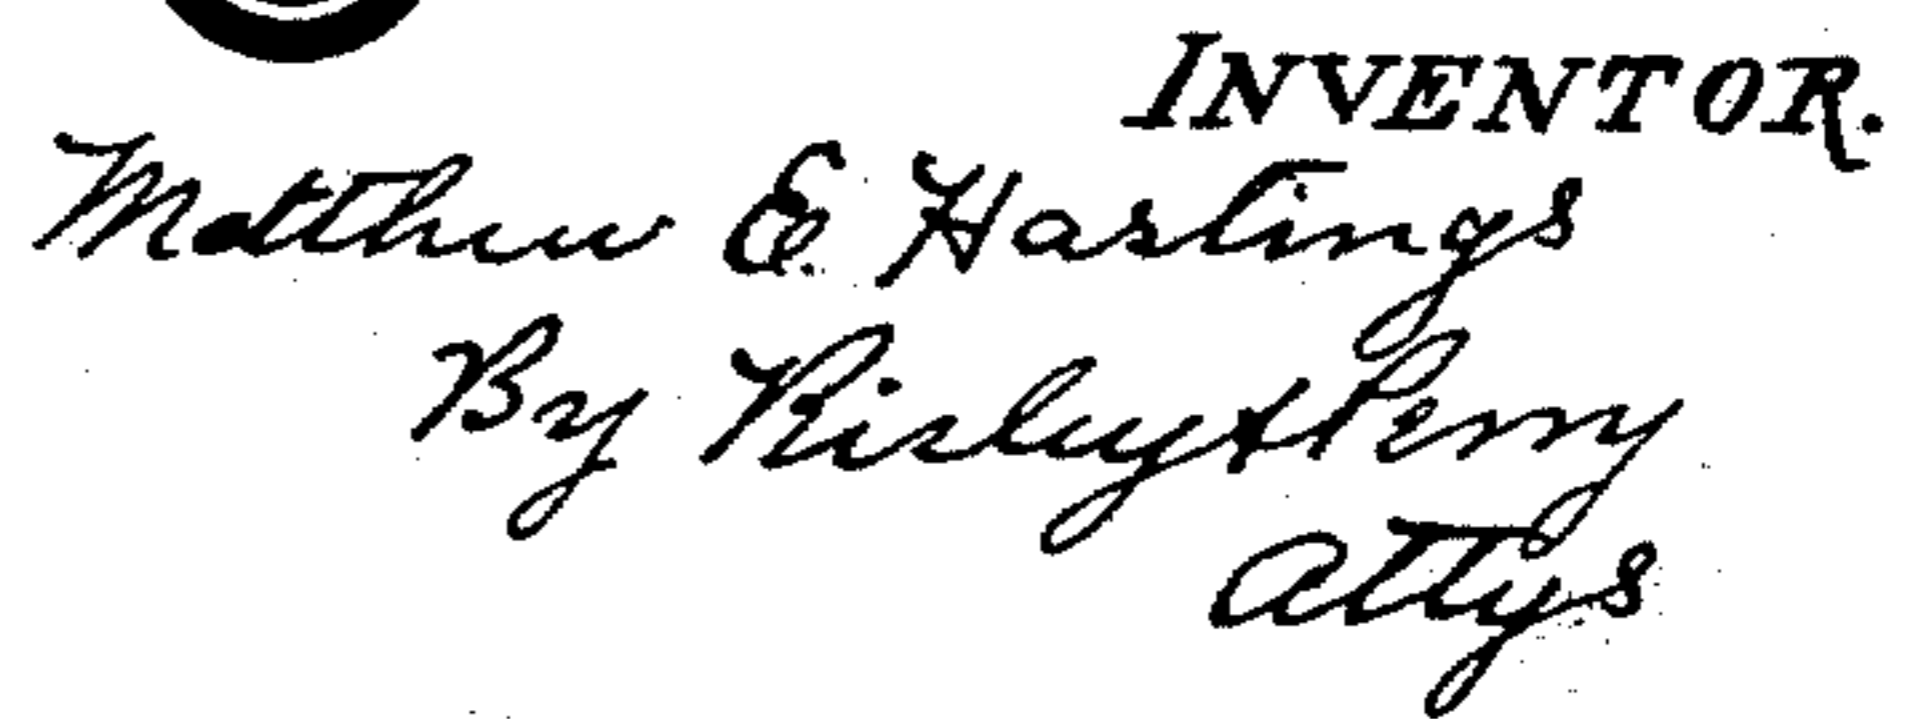 INVENTOR.
Matthew E. Hastings
By Risley & Perry
Attys